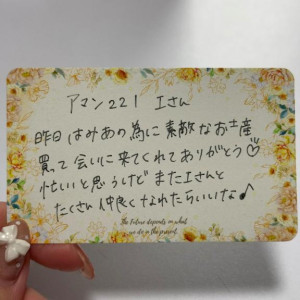 アマン221 Iさん
昨日はみあの為に素敵なお土産
買って会いに来てくれてありがとう♡
忙しいと思うけどまたIさんと
たくさん仲良くなれたらいいな♪
The Future depends on what
we do in the present.